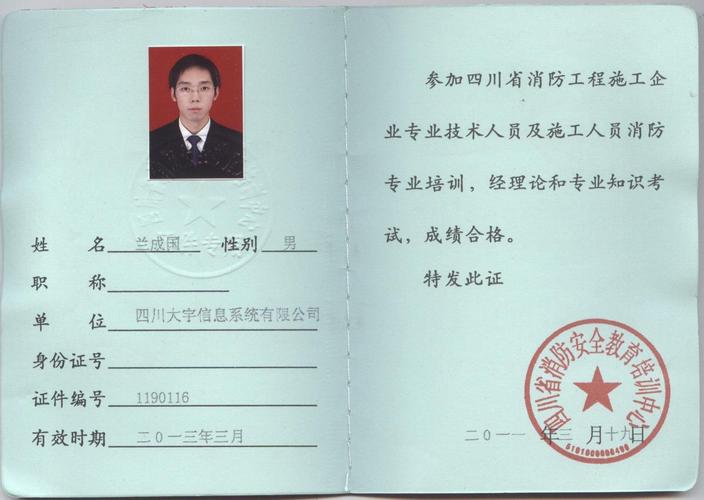 姓 名 兰成国 性别 男
职 称
单 位 四川大宇信息系统有限公司
身份证号
证件编号 1190116
有效时期 二0一三年三月
参加四川省消防工程施工企
业专业技术人员及施工人员消防
专业培训，经理论和专业知识考
试，成绩合格。
特发此证
四川省消防安全教育培训中心
二0一一 年 三 月 十九 日
5101000000490